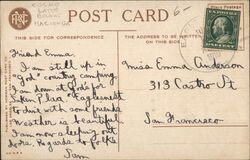 POST CARD
THIS SIDE FOR CORRESPONDENCE
THE ADDRESS TO BE WRITTEN ON THIS SIDE
6-
Friend Emma:
I am still up in
"God's" country camping
Am down at
to dine with some friends
Weather is beautiful
Am now sleeping out
doors. Regards to folks
Sam
Miss Emma Anderson
319 Castro St
San Francisco